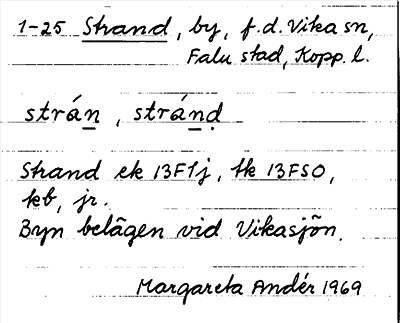 1-25 Strand, by, f.d. Vika sn,
Falu stad, Kopp. l.
strán̲, strán̲ḍ
Strand ek 13F1j, tk 13FSO,
kb, jr.
Byn belägen vid Vikasjön.
Margareta Andér 1969